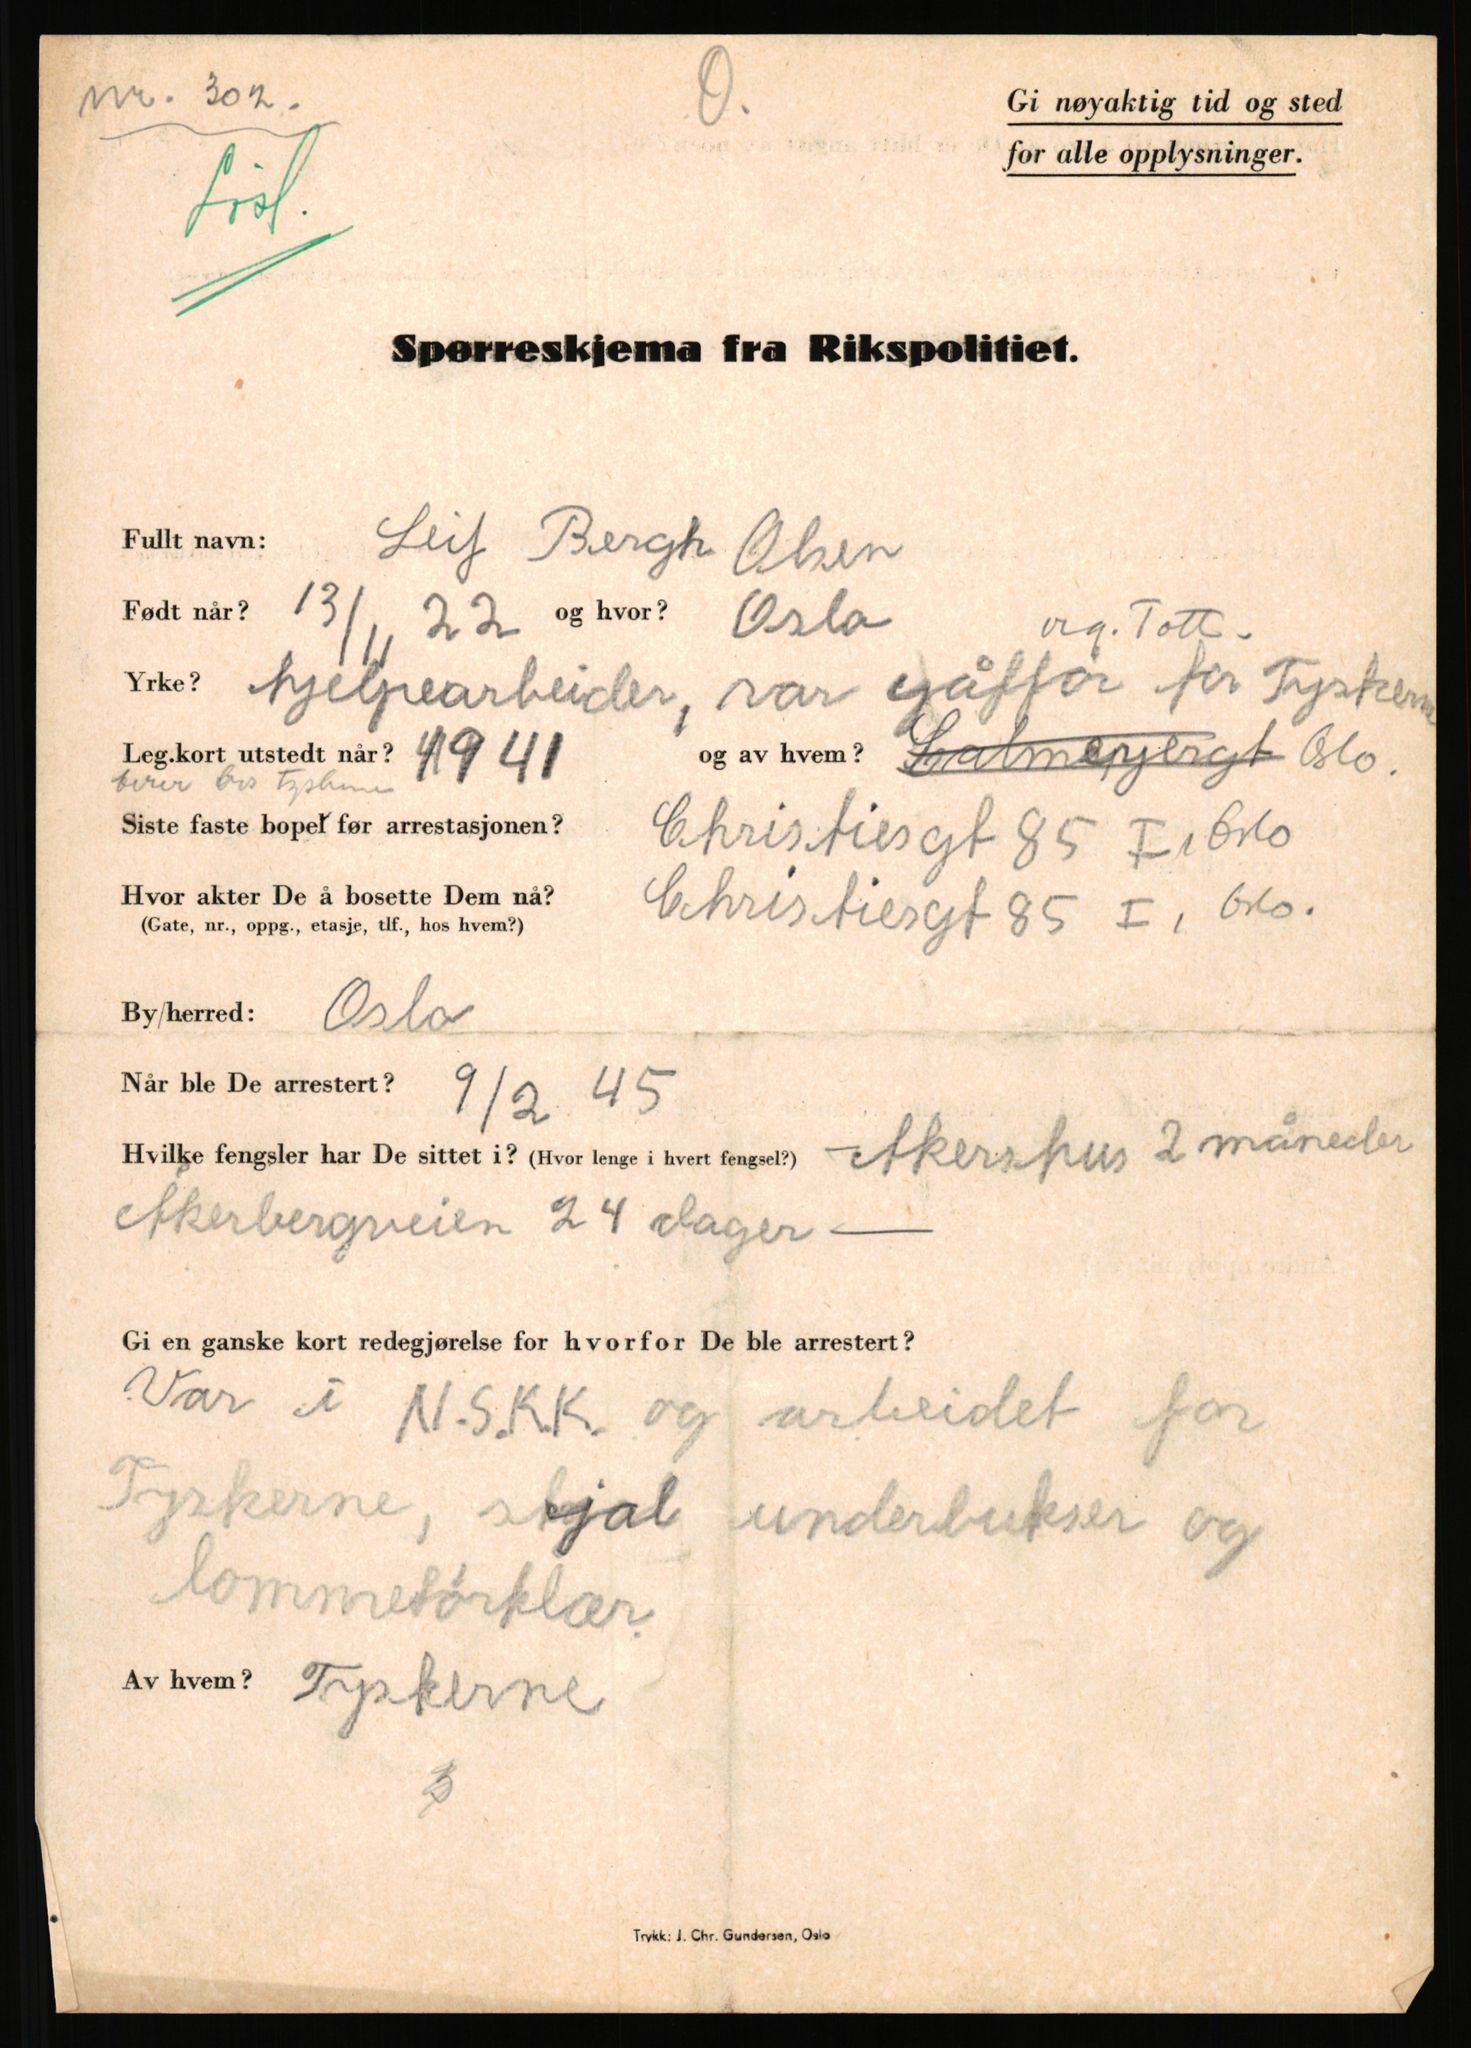 nr. 302.
O.
Gi nøyaktig tid og sted
for alle opplysninger.
Løsl.
Spørreskjema fra Rikspolitiet.
Fullt navn: Leif Bergh Olsen
Født når? 13/11 22 og hvor? Oslo
org. Tott.
Yrke? hjelpearbeider, var sjåffør for Tyskerne
Leg.kort utstedt når? 1941 og av hvem? Oslo.
Tyskerne
Siste faste bopel før arrestasjonen? Christiesgt 85 I, Oslo
Hvor akter De å bosette Dem nå? Christiesgt 85 I, Oslo.
(Gate, nr., oppg., etasje, tlf., hos hvem?)
By/herred: Oslo
Når ble De arrestert? 9/2 45
Hvilke fengsler har De sittet i? (Hvor lenge i hvert fengsel?) Akershus 2 måneder
Åkerbergveien 24 dager —
Gi en ganske kort redegjørelse for hvorfor De ble arrestert?
Var i N.S.K.K. og arbeidet for
Tyskerne, stjal underbukser og
lommetørklær.
Av hvem? Tyskerne
Trykk: J. Chr. Gundersen, Oslo